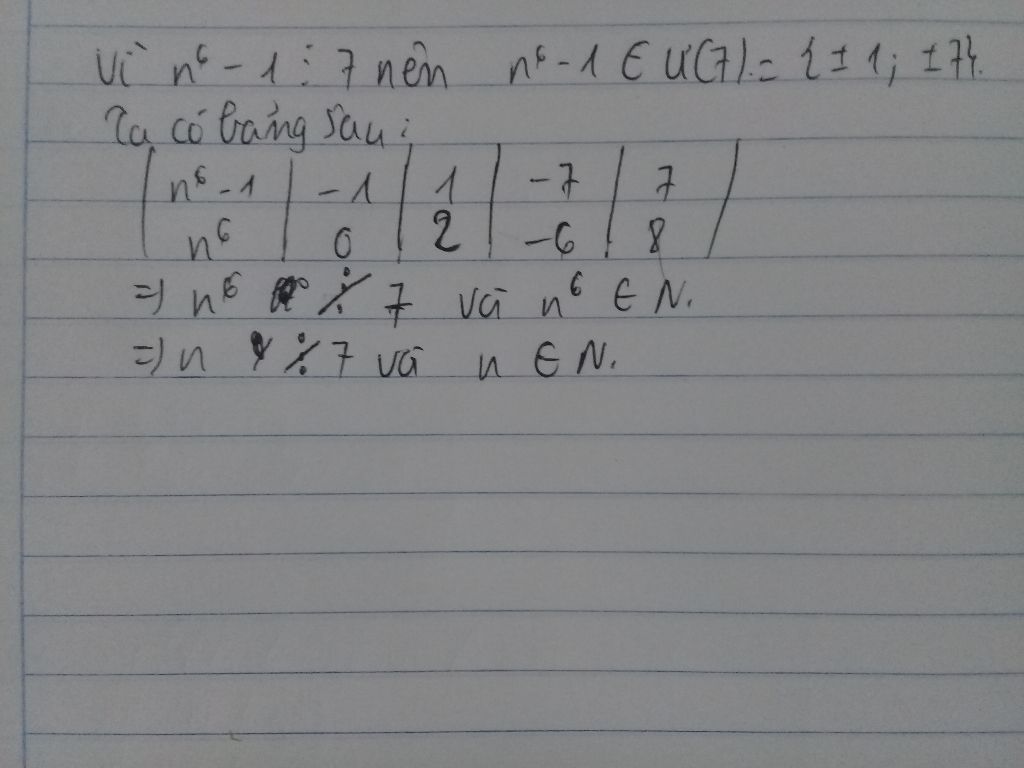 Vì n⁶ - 1 ⋮ 7 nên n⁶ - 1 ∈ Ư(7) = {±1; ±7}.
Ta có bảng sau:
| n⁶ - 1 | -1 | 1 | -7 | 7 |
| n⁶ | 0 | 2 | -6 | 8 |
=> n⁶ ⋮̸ 7 và n⁶ ∈ N.
=> n ⋮̸ 7 và n ∈ N.